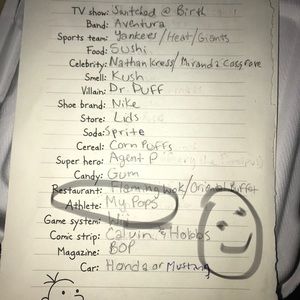 TV show: Switched @ Birth
Band: Aventura
Sports team: Yankees/Heat/Giants
Food: Sushi
Celebrity: Nathan Kress/Miranda Cosgrove
Smell: Kush
Villain: Dr. Duff
Shoe brand: Nike
Store: Lids
Soda: Sprite
Cereal: Corn Puffs
Super hero: Agent P
Candy: Gum
Restaurant: Flaming Wok/Oriental Buffet
Athlete: My Pops
Game system: Wii
Comic strip: Calvin & Hobbs
Magazine: BOP
Car: Honda or Mustang